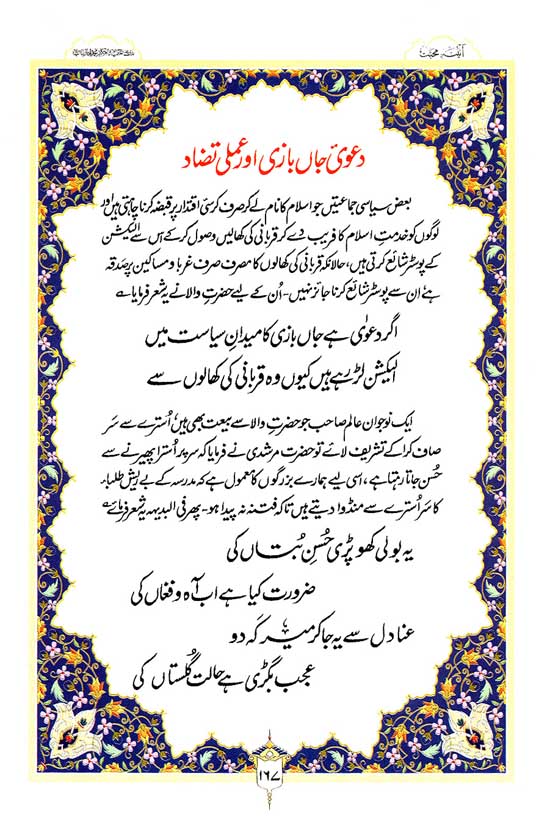 آئینۂ محبت
دعویٰ جاں بازی اور عملی تضاد
بعض سیاسی جماعتیں جو اسلام کا نام لے کر صرف کرسئ اقتدار پر قبضہ کرنا چاہتی ہیں اور
لوگوں کو خدمتِ اسلام کا فریب دے کر قربانی کی کھالیں وصول کرکے اس سے الیکشن
کے پوسٹر شائع کرتی ہیں، حالانکہ قربانی کی کھالوں کا مصرف صرف غربا و مساکین پر صدقہ
ہے، ان سے پوسٹر شائع کرنا جائز نہیں۔ اُن کے لیے حضرتِ والا نے یہ شعر فرمایا؎
اگر دعویٰ ہے جاں بازی کا میدانِ سیاست میں
الیکشن لڑ رہے ہیں کیوں وہ قربانی کی کھالوں سے
ایک نوجوان عالم صاحب جو حضرتِ والا سے بیعت بھی ہیں، اُسترے سے سَر
صاف کرا کے تشریف لائے تو حضرت مرشدی نے فرمایا کہ سر پر اُسترا پھیرنے سے
حُسن جاتا رہتا ہے، اسی لیے ہمارے بزرگوں کا معمول ہے کہ مدرسہ کے بے ریش طلباء
کا سَر اُسترے سے منڈوا دیتے ہیں تاکہ فتنہ نہ پیدا ہو۔ پھر فی البدیہہ یہ شعر فرمائے؎
یہ بولی کھوپڑی حُسنِ بُتاں کی
ضرورت کیا ہے اب آہ و فغاں کی
عنادل سے یہ جا کر میرؔ کہہ دو
عجب بگڑی ہے حالت گُلستاں کی
۱۶۷